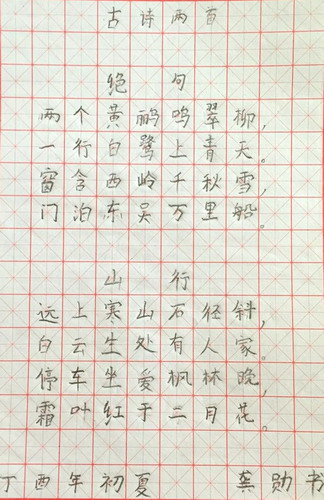 古诗两首
绝句
两个黄鹂鸣翠柳,
一行白鹭上青天。
窗含西岭千秋雪,
门泊东吴万里船。
山行
远上寒山石径斜,
白云生处有人家。
停车坐爱枫林晚,
霜叶红于二月花。
丁酉年初夏 龚勋书